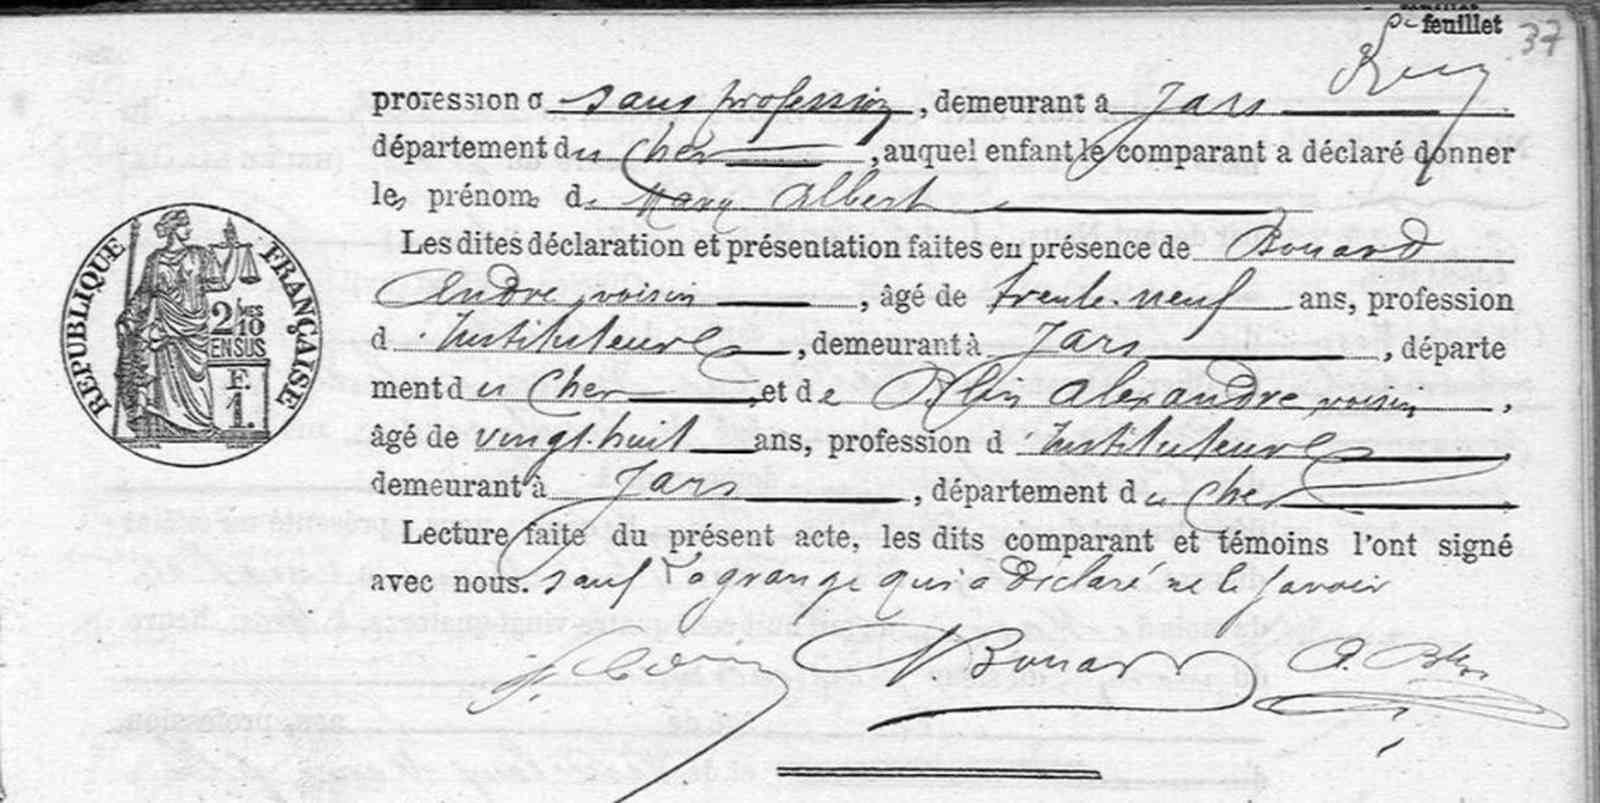 feuillet 37
profession d sans profession, demeurant à Jars
département du Cher, auquel enfant le comparant a déclaré donner
les prénoms de Marc Albert
Les dites déclaration et présentation faites en présence de Bouard
André, voisin, âgé de trente-neuf ans, profession
d'Instituteur, demeurant à Jars, départe
ment du Cher et de Blin Alexandre, voisin,
âgé de vingt-huit ans, profession d'Instituteur
demeurant à Jars, département du Cher
Lecture faite du présent acte, les dits comparant et témoins l'ont signé
avec nous. sauf Lagrange qui a déclaré ne le savoir
Bouard A. Blin
RÉPUBLIQUE FRANÇAISE
2/10MES
EN SUS
F.
1.